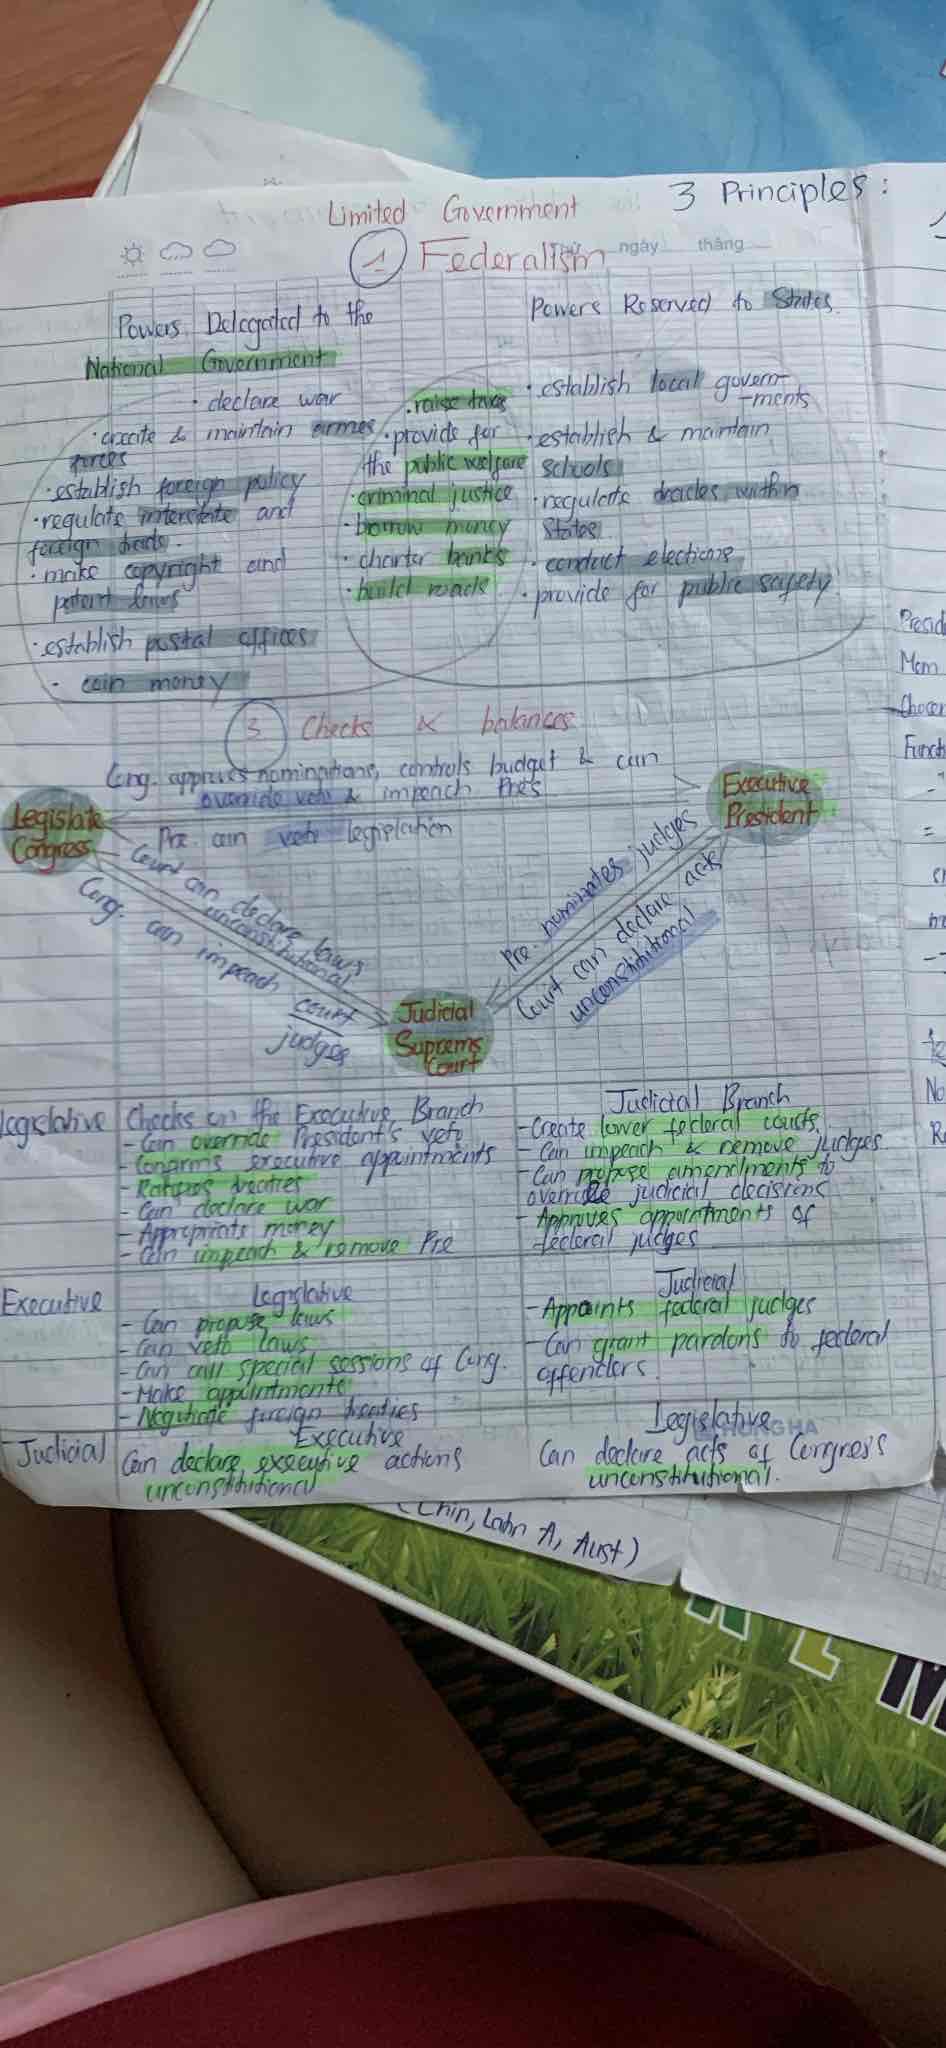 Limited Government
3 Principles:
1 Federalism
ngày tháng
Powers Delegated to the
National Government
Powers Reserved to States
· declare war
· create & maintain armes
forces
· establish foreign policy
· regulate interstate and
foreign trade.
· make copyright and
patent laws
· establish postal offices
· coin money
· raise taxes
· provide for
the public welfare
· criminal justice
· borrow money
· charter banks
· build roads
· establish local govern-
-ments
· establish & maintain
schools
· regulate trades within
States
· conduct elections
· provide for public safety
3 Checks & balances
Cong. approves nominations, controls budget & can
override veto & impeach Pres
Legislate
Congress
Executive
President
Pre. can veto legislation
Court can declare laws
unconstitutional
Cong. can impeach court
judges
Pre. nominates judges
Court can declare acts
unconstitutional
Judicial
Suprems
Court
Legislative
Checks on the Executive Branch
- Can override President's veto
- Confirms executive appointments
- Ratifies treaties
- Can declare war
- Appropriats money
- Can impeach & remove Pre
Judicial Branch
- Create lower federal courts.
- Can impeach & remove judges
- Can propose amendments to
override judicial decisions
- Approves appointments of
federal judges
Executive
Legislative
- Can propose laws
- Can veto laws
- Can call special sessions of Cong.
- Make appointments
- Negotiate foreign treaties
Judicial
- Appoints federal judges
- Can grant pardons to federal
offenders.
Judicial
Executive
Can declare executive actions
unconstitutional
Legislative
HONGHA
Can declare acts of Congress
unconstitutional.
(Chin, Latin A, Aust)
Presid
Mem
Chosen
Funct
No